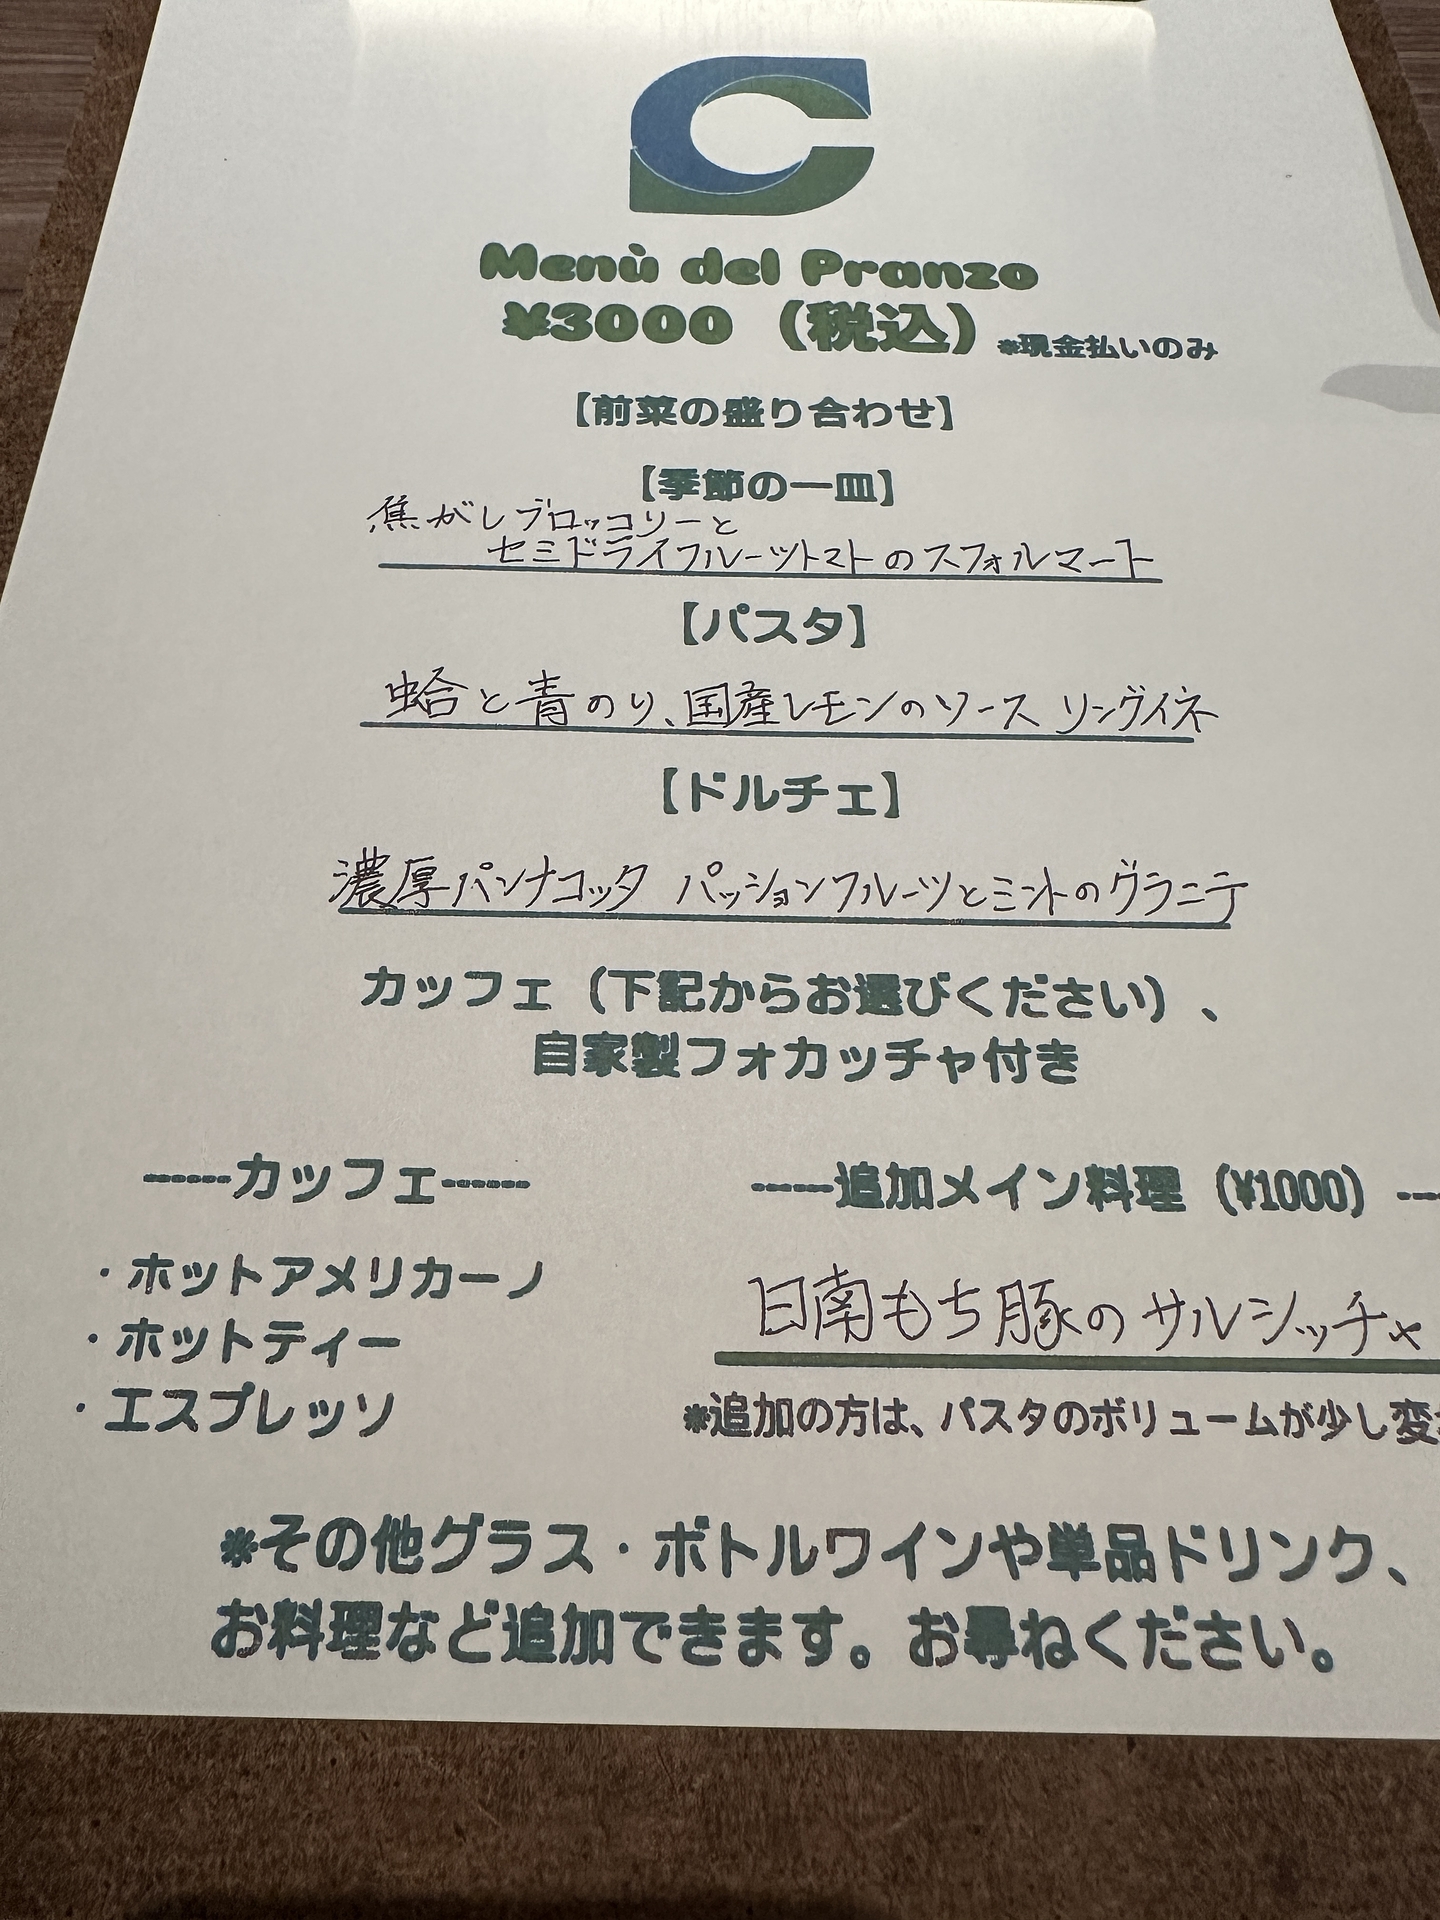 Menù del Pranzo
¥3000（税込）※現金払いのみ
【前菜の盛り合わせ】
【季節の一皿】
焦がしブロッコリーと
セミドライフルーツトマトのスフォルマート
【パスタ】
蛤と青のり、国産レモンのソース リングイネ
【ドルチェ】
濃厚パンナコッタ パッションフルーツとミントのグラニテ
カッフェ（下記からお選びください）、
自家製フォカッチャ付き
-----カッフェ-----
・ホットアメリカーノ
・ホットティー
・エスプレッソ
-----追加メイン料理（¥1000）---
日南もち豚のサルシッチャ
※追加の方は、パスタのボリュームが少し変
※その他グラス・ボトルワインや単品ドリンク、
お料理など追加できます。お尋ねください。